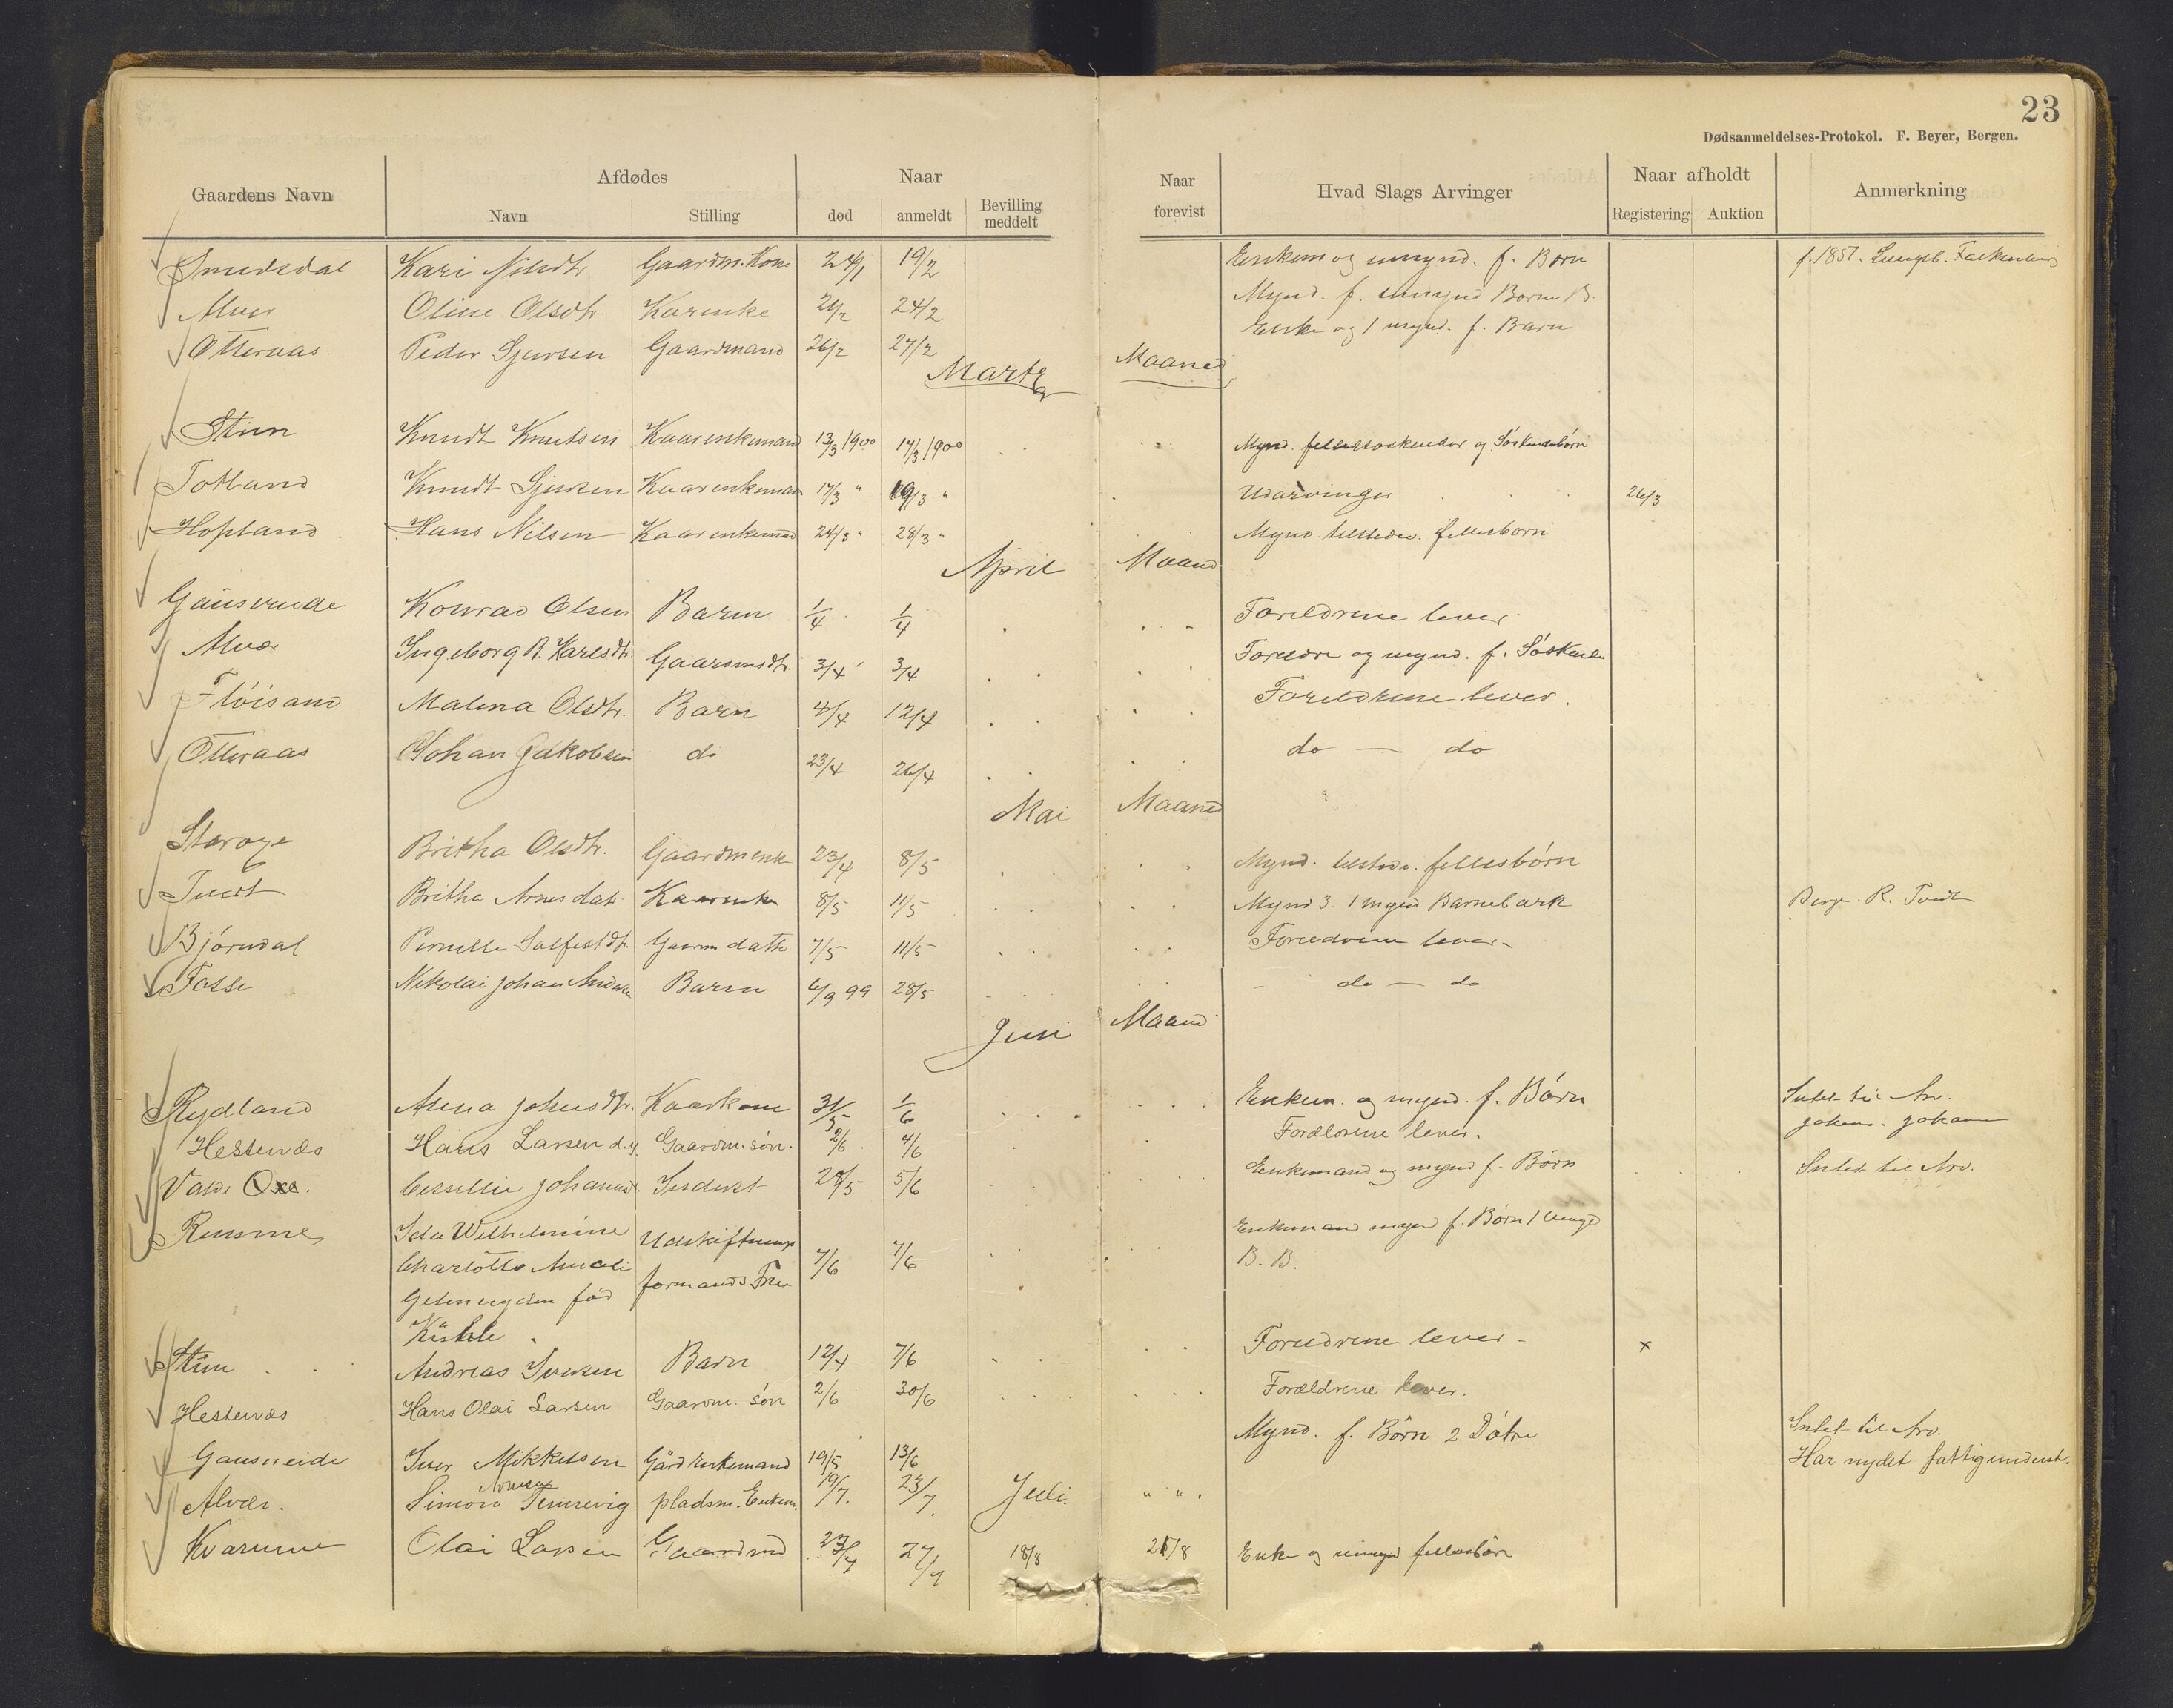 23
Dødsanmeldelses-Protokol. F. Beyer, Bergen.
Gaardens Navn Afdødes Naar Naar Hvad Slags Arvinger Naar afholdt Anmerkning
Navn Stilling død anmeldt Bevilling meddelt forevist Registering Auktion
Smedsdal Kari Nilsdtr Gaardm. Kone 24/1 19/2 Enkem og umynd. f. Børn f. 1851.
Alver Oline Olsdtr. Karenke 21/2 24/2 Mynd. f. umynd Børne B.
Otteraas. Peder Sjursen Gaardmand 26/2 27/2 Enke og 1 mynd. f. Barn
Marts Maaned
Stien Knudt Knutsen Kaarenkemand 13/3 1900 17/3 1900 Mynd. fellessøskender og Søskendebørn
Totland Knudt Sjursen Kaarenkeman 17/3 " 19/3 " Udarvinger 26/3
Hopland Hans Nilsen Kaarenkemand 24/3 " 28/3 " Mynd tilstede. fellesborn
April Maaned
Gausereide Konrad Olsen Barn 1/4 1/4 Foreldrene lever
Alvær Ingeborg B. Karlsdtr. Gaardmsdtr. 3/4 3/4 Foreldre og mynd. f. Søskende
Fløisand Malena Olsdtr. Barn 4/4 12/4 Foreldrene lever.
Otteraas Johan Jakobsen do 23/4 26/4 do — do
Mai Maaned
Britha Olsdtr. Gaardmenk 23/4 8/5 Mynd. tilstede. fellesbørn
Tvedt Britha Arnesdatr Kaarenke 8/5 11/5 Mynd 3. 1 mynd Barnebarn
Bjørndal Pernille Salfestdtr. Gaardm datter 7/5 11/5 Foreldrene lever -
Fosse Nikolai Johan Andersen Barn 6/9 99 28/5 - do — do
Juni Maaned
Rydland Anna Johnsdtr. Kaarkone 31/5 1/6 Enkem. og mynd. f. Børn Intet til Arv.
Hestenæs Hans Larsen d.y. Gaardm. søn. 2/6 4/6 Forældrene lever.
Johannesd. Inderst 28/5 5/6 Enkemand og mynd f. Børn Intet til Arv.
Ida Wilhelmine Udskiftnings 7/6 7/6 Enkemand mynd f. Børn 1
Charlotte Amalie formands Frue B. B.
fød
Stien Andreas Iversen Barn 12/4 7/6 Foreldrene lever - x
Hestenæs Hans Olai Larsen Gaardm. søn 2/6 30/6 Forældrene lever.
Gausereide Iver Mikkelsen Gård Enkemand 19/5 13/6 Mynd. f. Børn 2 Døtre Intet til Arv.
Alvær. Simon Arnesen pladsm. Enkem. 19/7. 23/7. Juli. " ". Har nydt fattigunderst.
Kvamme Olai Larsen Gaardmd 23/7 27/7 18/8 21/8 Enke og umynd fellesbørn